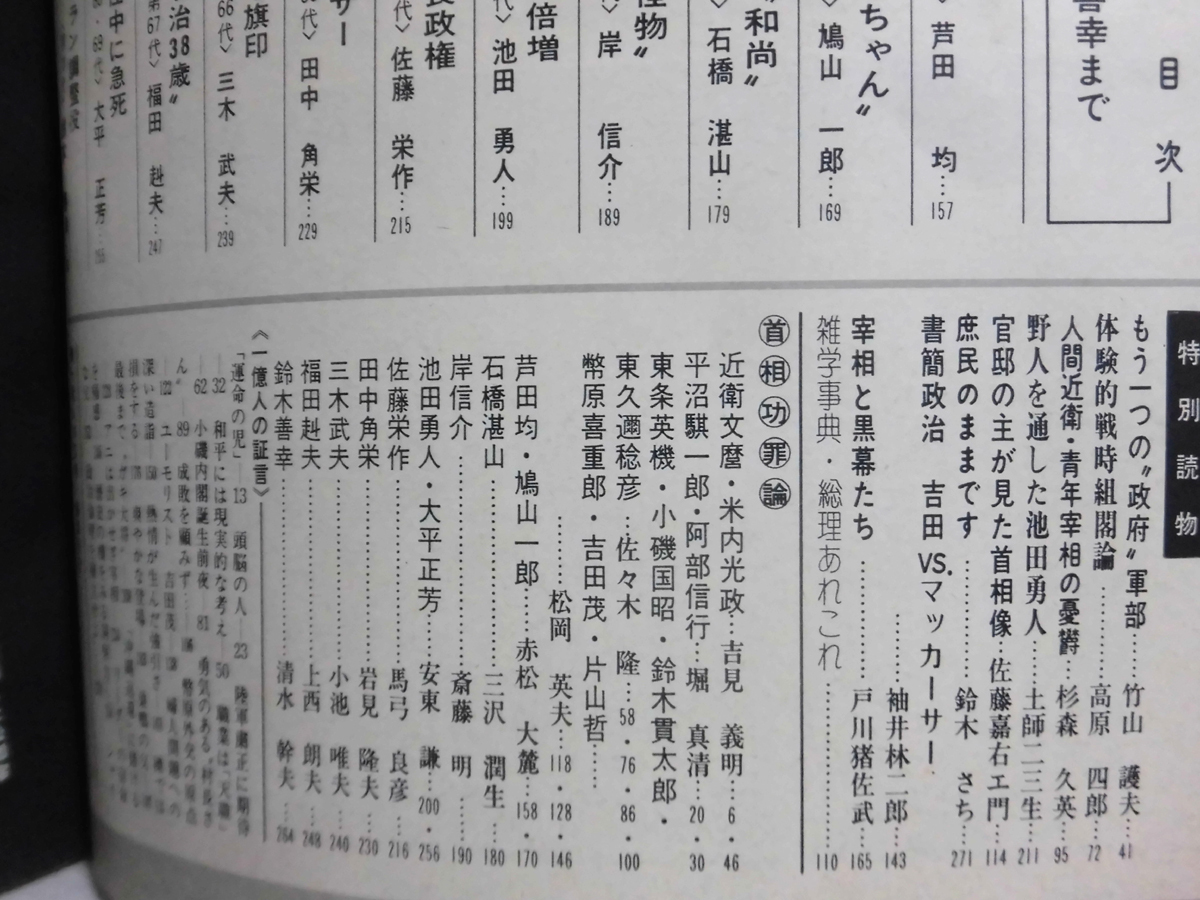 目次
善幸まで
芦田 均…157
ちゃん〟
鳩山 一郎…169
和尚〟
石橋 湛山…179
怪物〟
岸 信介…189
倍増
池田 勇人…199
長政権
代〉 佐藤 栄作…215
サー
田中 角栄…229
旗印
66代〉 三木 武夫…239
治38歳〟
第67代〉 福田 赳夫…247
中に急死
大平 正芳…
特別読物
もう一つの〝政府〟軍部……竹山 護夫…41
体験的戦時組閣論………高原 四郎…72
人間近衛・青年宰相の憂欝…杉森 久英…95
野人を通した池田勇人……土師二三生…211
官邸の主が見た首相像…佐藤嘉右エ門…114
庶民のままです………鈴木 さち…271
書簡政治 吉田VS.マッカーサー
………袖井林二郎…143
宰相と黒幕たち………戸川猪佐武…165
雑学事典・総理あれこれ………110
首相功罪論
近衛文麿・米内光政…吉見 義明…6・46
平沼騏一郎・阿部信行…堀 真清…20・30
東条英機・小磯国昭・鈴木貫太郎・
東久邇稔彦…佐々木 隆…58・76・86・100
幣原喜重郎・吉田茂・片山哲……
……松岡 英夫…118・128・146
芦田均・鳩山一郎……赤松 大麓…158・170
石橋湛山………三沢 潤生…180
岸信介………斎藤 明…190
池田勇人・大平正芳……安東 謙…200・256
佐藤栄作………馬弓 良彦…216
田中角栄………岩見 隆夫…230
三木武夫………小池 唯夫…240
福田赳夫………上西 朗夫…248
鈴木善幸………清水 幹夫…264
《一億人の証言》
「運命の児」―13 頭脳の人―23 陸軍粛正に期待
―32 和平には現実的な考え―50 職業は「天職」
―62 小磯内閣誕生前夜 81 勇気のある〝村長さ
ん〟 89 成敗を顧みず
ユーモリスト 吉田茂 婦人問題への
深い造詣 熱情が生んだ